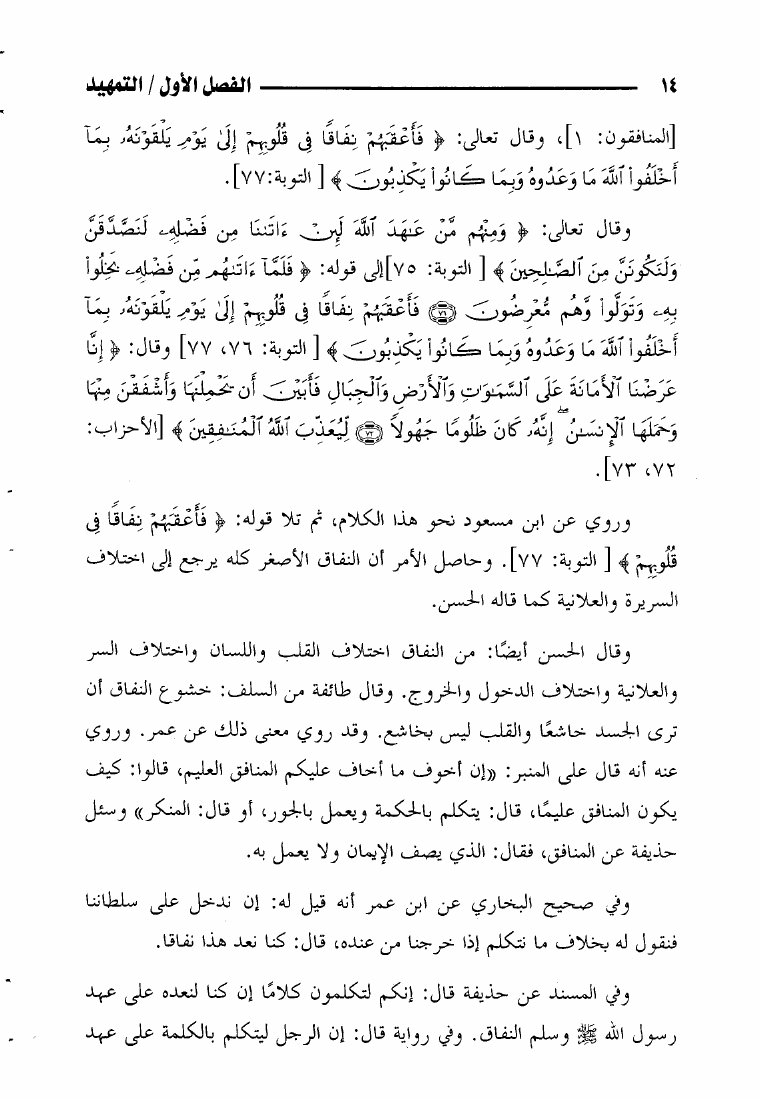 ١٤ الفصل الأول / التمهيد
[المنافقون: ١]، وقال تعالى: ﴿ فَأَعْقَبَهُمْ نِفَاقًا فِى قُلُوبِهِمْ إِلَىٰ يَوْمِ يَلْقَوْنَهُۥ بِمَآ
أَخْلَفُوا۟ ٱللَّهَ مَا وَعَدُوهُ وَبِمَا كَانُوا۟ يَكْذِبُونَ ﴾ [ التوبة:٧٧].
وقال تعالى: ﴿ وَمِنْهُم مَّنْ عَـٰهَدَ ٱللَّهَ لَئِنْ ءَاتَىٰنَا مِن فَضْلِهِۦ لَنَصَّدَّقَنَّ
وَلَنَكُونَنَّ مِنَ ٱلصَّـٰلِحِينَ ﴾ [ التوبة: ٧٥]إلى قوله: ﴿ فَلَمَّآ ءَاتَىٰهُم مِّن فَضْلِهِۦ بَخِلُوا۟
بِهِۦ وَتَوَلَّوا۟ وَّهُم مُّعْرِضُونَ ۝٧٦ فَأَعْقَبَهُمْ نِفَاقًا فِى قُلُوبِهِمْ إِلَىٰ يَوْمِ يَلْقَوْنَهُۥ بِمَآ
أَخْلَفُوا۟ ٱللَّهَ مَا وَعَدُوهُ وَبِمَا كَانُوا۟ يَكْذِبُونَ ﴾ [ التوبة: ٧٦، ٧٧] وقال: ﴿ إِنَّا
عَرَضْنَا ٱلْأَمَانَةَ عَلَى ٱلسَّمَـٰوَٰتِ وَٱلْأَرْضِ وَٱلْجِبَالِ فَأَبَيْنَ أَن يَحْمِلْنَهَا وَأَشْفَقْنَ مِنْهَا
وَحَمَلَهَا ٱلْإِنسَـٰنُ ۖ إِنَّهُۥ كَانَ ظَلُومًا جَهُولًا ۝٧٢ لِّيُعَذِّبَ ٱللَّهُ ٱلْمُنَـٰفِقِينَ ﴾ [الأحزاب:
٧٢، ٧٣].
وروي عن ابن مسعود نحو هذا الكلام، ثم تلا قوله: ﴿ فَأَعْقَبَهُمْ نِفَاقًا فِى
قُلُوبِهِمْ ﴾ [ التوبة: ٧٧]. وحاصل الأمر أن النفاق الأصغر كله يرجع إلى اختلاف
السريرة والعلانية كما قاله الحسن.
وقال الحسن أيضًا: من النفاق اختلاف القلب واللسان واختلاف السر
والعلانية واختلاف الدخول والخروج. وقال طائفة من السلف: خشوع النفاق أن
ترى الجسد خاشعًا والقلب ليس بخاشع. وقد روي معنى ذلك عن عمر. وروي
عنه أنه قال على المنبر: «إن أخوف ما أخاف عليكم المنافق العليم، قالوا: كيف
يكون المنافق عليمًا، قال: يتكلم بالحكمة ويعمل بالجور، أو قال: المنكر» وسئل
حذيفة عن المنافق، فقال: الذي يصف الإيمان ولا يعمل به.
وفي صحيح البخاري عن ابن عمر أنه قيل له: إن ندخل على سلطاننا
فنقول له بخلاف ما نتكلم إذا خرجنا من عنده، قال: كنا نعد هذا نفاقا.
وفي المسند عن حذيفة قال: إنكم لتكلمون كلامًا إن كنا لنعده على عهد
رسول الله ﷺ وسلم النفاق. وفي رواية قال: إن الرجل ليتكلم بالكلمة على عهد